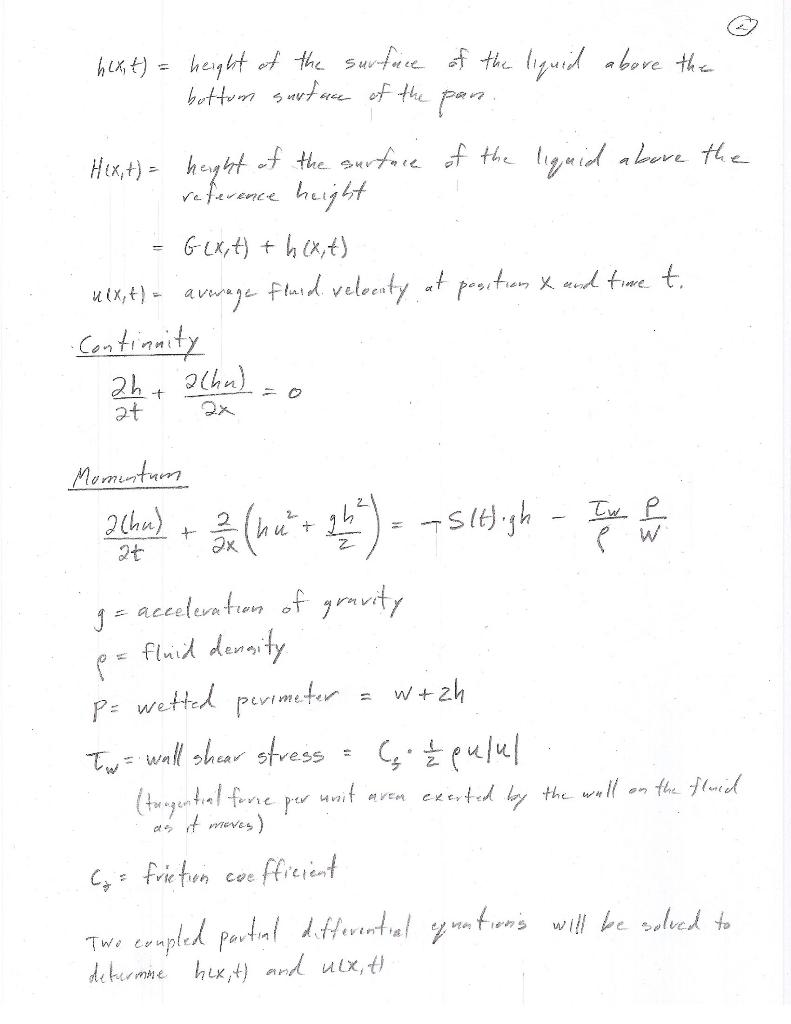 2
h(x,t) = height of the surface of the liquid above the
bottom surface of the pan.
H(x,t) = height of the surface of the liquid above the
reference height
= G(x,t) + h(x,t)
u(x,t) = average fluid velocity at position x and time t.
Continuity
∂h/∂t + ∂(hu)/∂x = 0
Momentum
∂(hu)/∂t + ∂/∂x (hu² + gh²/2) = -S(t)·gh - τw/ρ P/W
g = acceleration of gravity
ρ = fluid density
P = wetted perimeter = w + 2h
τw = wall shear stress = Cf · 1/2 ρu|u|
(tangential force per unit area exerted by the wall on the fluid
as it moves)
Cf = friction coefficient
Two coupled partial differential equations will be solved to
determine h(x,t) and u(x,t)